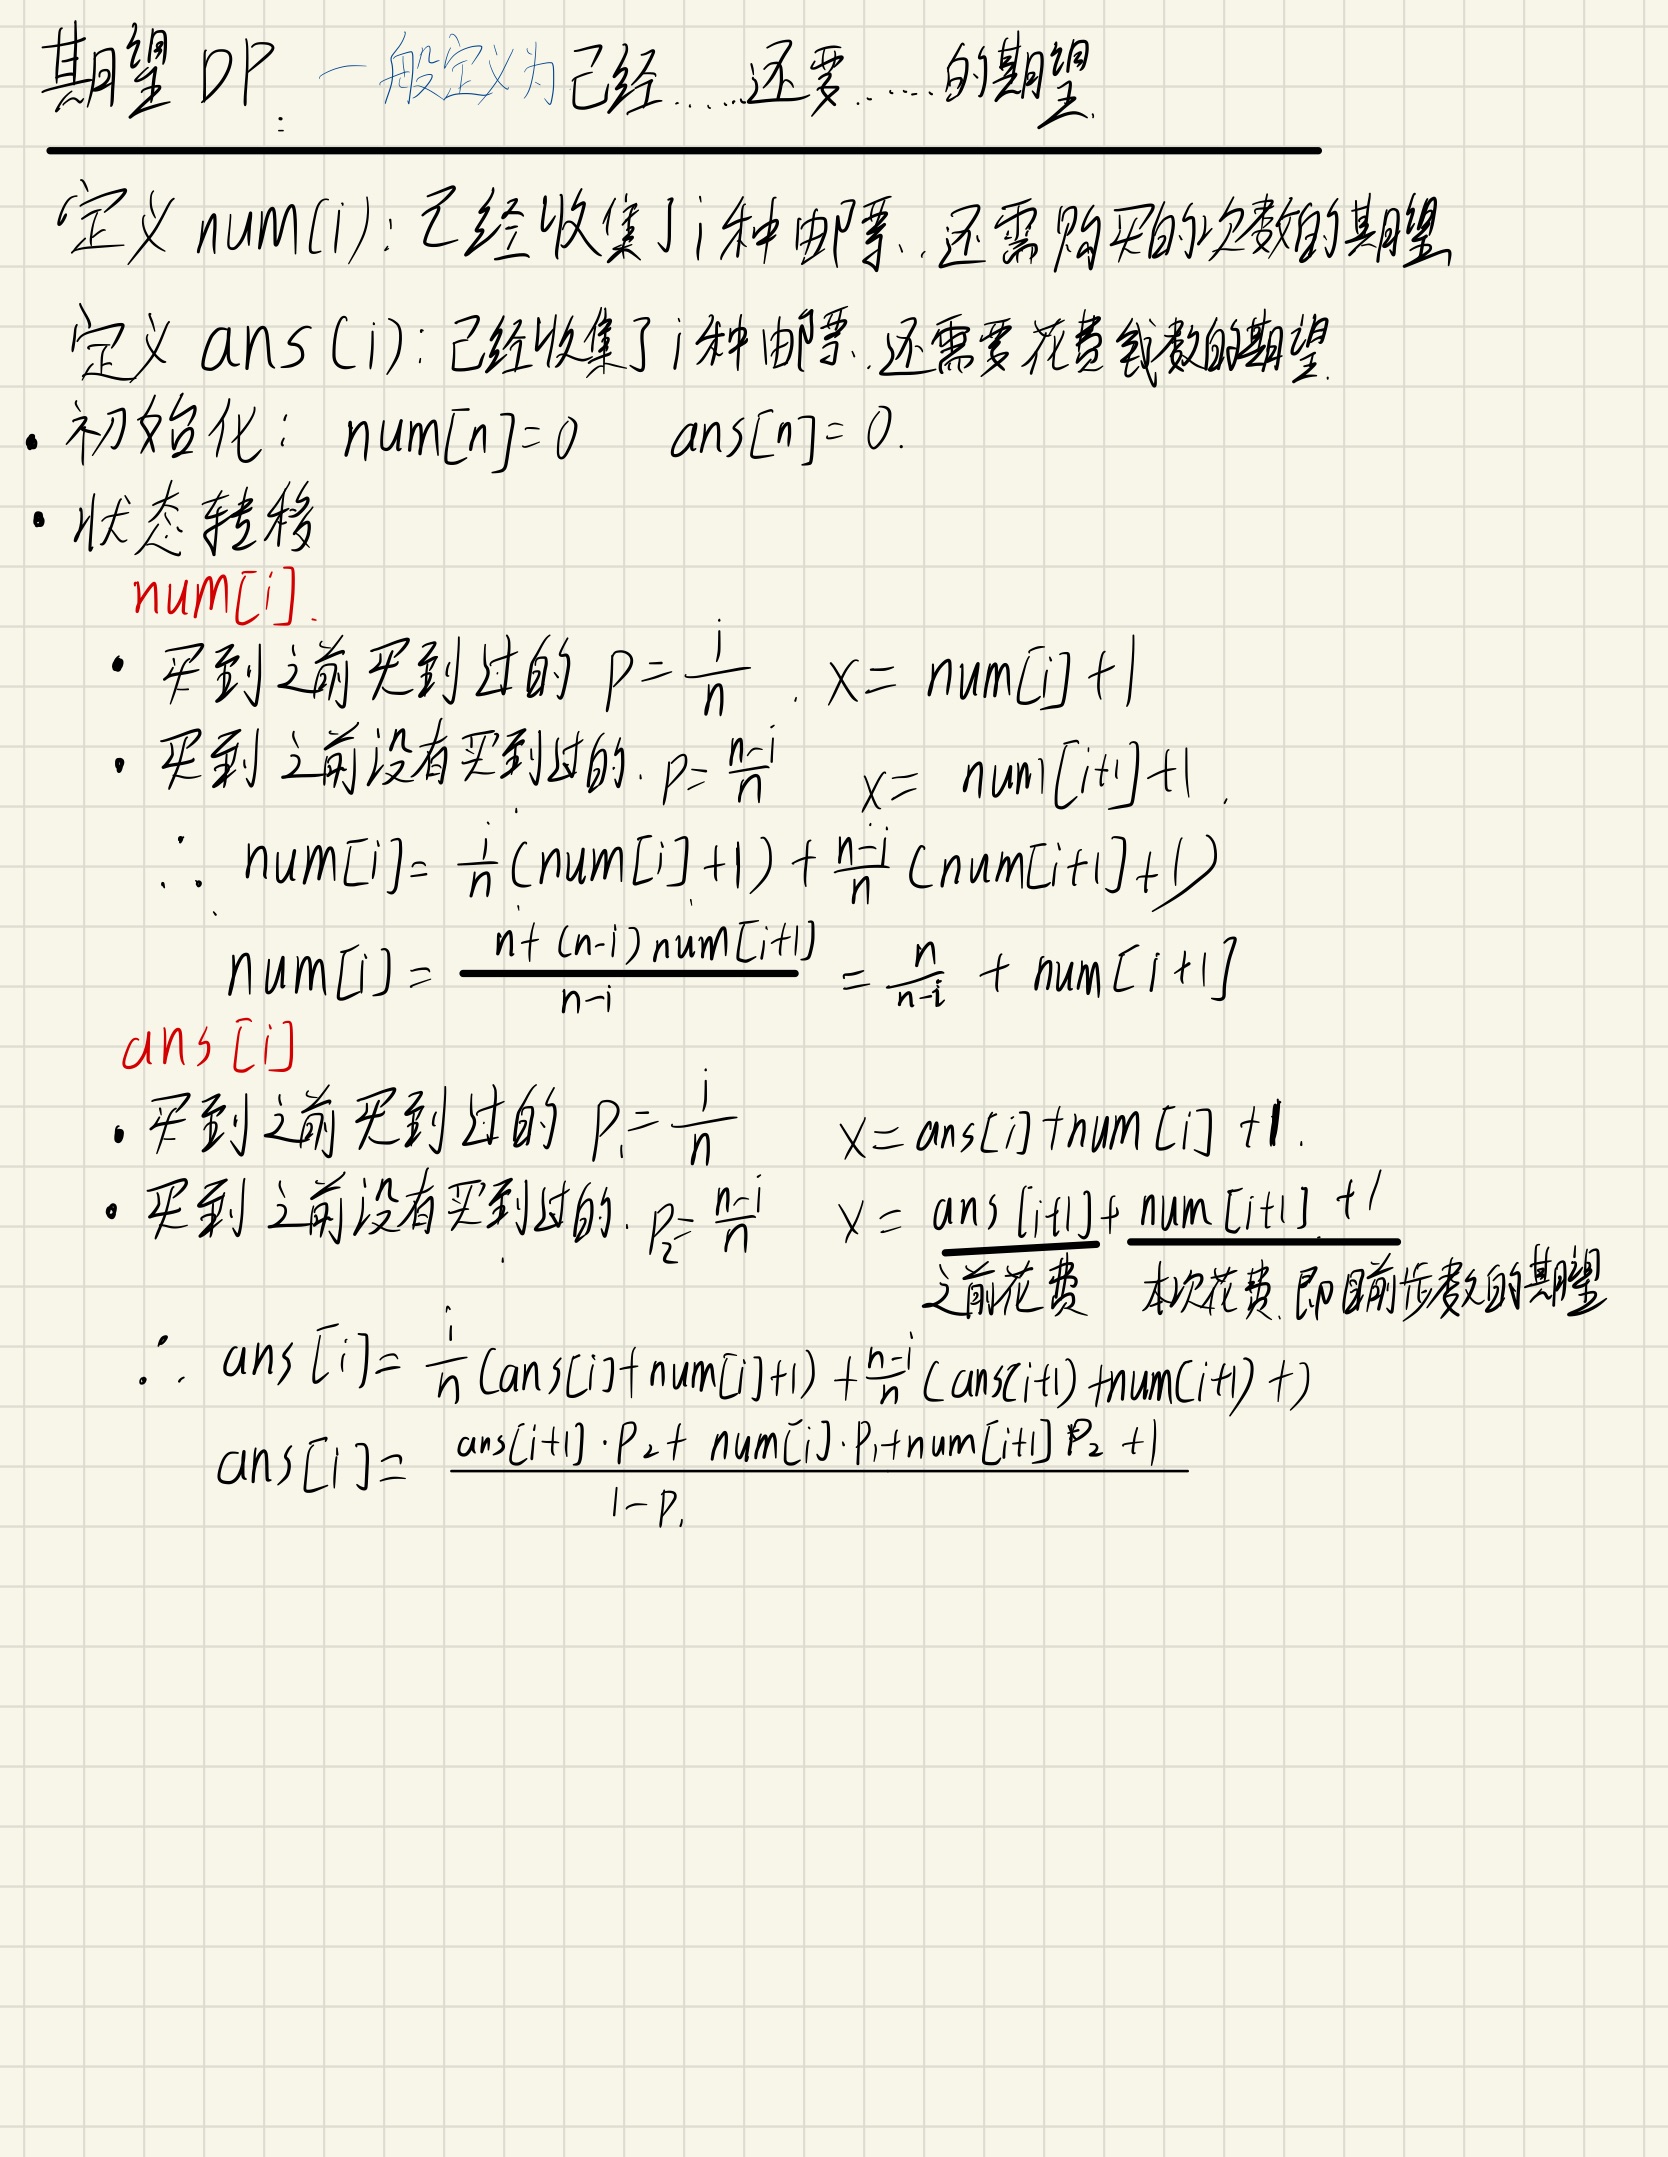 期望 DP: 一般定义为 已经......还要......的期望.
定义 num(i): 已经收集了i种邮票, 还需购买的次数的期望
定义 ans(i): 已经收集了i种邮票, 还需要花费钱数的期望.
• 初始化: num[n]=0 ans[n]=0.
• 状态转移
num[i].
• 买到之前买到过的 P=i/n. x=num[i]+1
• 买到之前没有买到过的. P=(n-i)/n x=num[i+1]+1.
∴ num[i]=i/n(num[i]+1)+(n-i)/n(num[i+1]+1)
num[i]=(n+(n-i)num[i+1])/(n-i)=n/(n-i)+num[i+1]
ans[i]
• 买到之前买到过的 P₁=i/n x=ans[i]+num[i]+1.
• 买到之前没有买到过的. P₂=(n-i)/n x=ans[i+1]+num[i+1]+1
之前花费 本次花费, 即目前步数的期望
∴ ans[i]=i/n(ans[i]+num[i]+1)+(n-i)/n(ans(i+1)+num(i+1)+)
ans[i]=(ans[i+1]·P₂+num[i]·P₁+num[i+1]P₂+1)/(1-P₁)